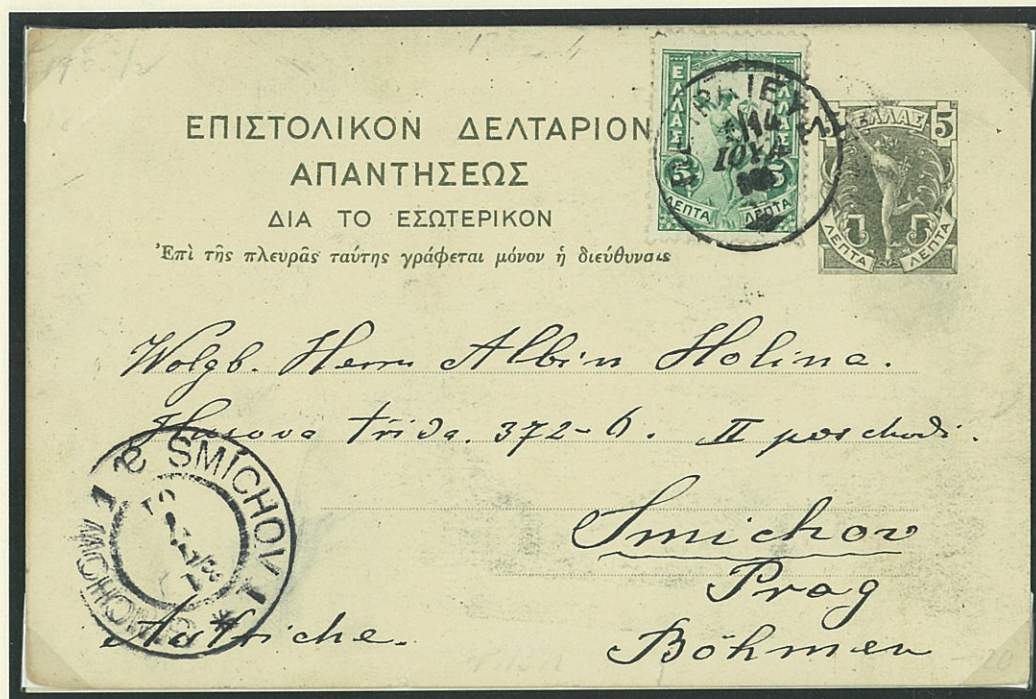 ΕΠΙΣΤΟΛΙΚΟΝ ΔΕΛΤΑΡΙΟΝ
ΑΠΑΝΤΗΣΕΩΣ
ΔΙΑ ΤΟ ΕΣΩΤΕΡΙΚΟΝ
Ἐπὶ τῆς πλευρᾶς ταύτης γράφεται μόνον ἡ διεύθυνσις
ΕΛΛΑΣ ΕΛΛΑΣ
5 5
ΛΕΠΤΑ ΛΕΠΤΑ
14
ΙΟΥΛ
5 ΕΛΛΑΣ 5
ΛΕΠΤΑ ΛΕΠΤΑ
Wolgb. Herrn Albin Holina.
Husova třída. 372-6. II
Smichov
Prag
Böhmen
Autriche.
SMÍCHOV 1
SMICHOW